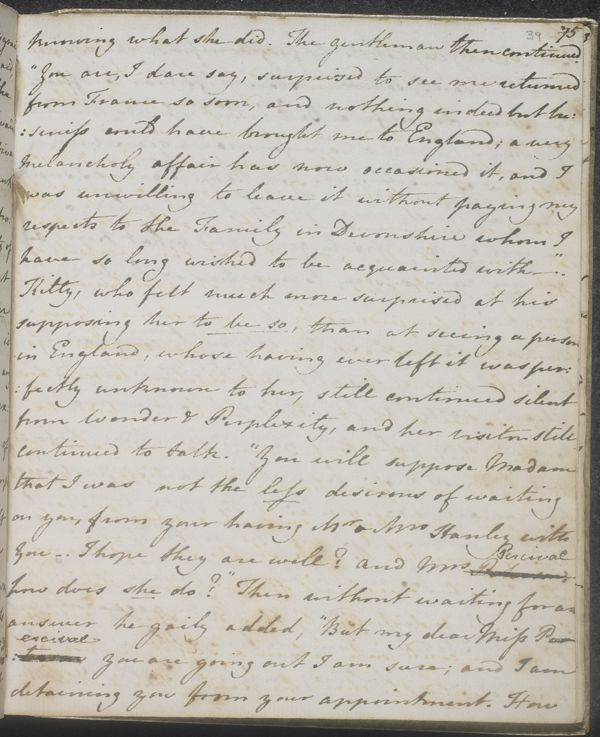 39 75
knowing what she did. The gentleman then continued
"You are, I dare say, surprized to see me returned
from France so soon, and nothing indeed but bu:
:siness could have brought me to England; a very
Melancholy affair has now occasioned it, and I
was unwilling to leave it without paying my
respects to the Family in Devonshire whom I
have so long wished to be acquainted with—".
Kitty, who felt much more surprised at his
supposing her to be so, than at seeing a person
in England, whose having ever left it was per:
:fectly unknown to her, still continued silent
from Wonder & Perplexity, and her visitor still
continued to talk. "You will suppose Madam
that I was not the less desirous of waiting
on you, from your having Mr & Mrs Stanley with
You—. I hope they are well? and Mrs Percival
how does she do?" Then without waiting for an
answer he gaily added, "But my dear Miss Per
ercival you are going out I am sure; and I am
detaining you from your appointment. How